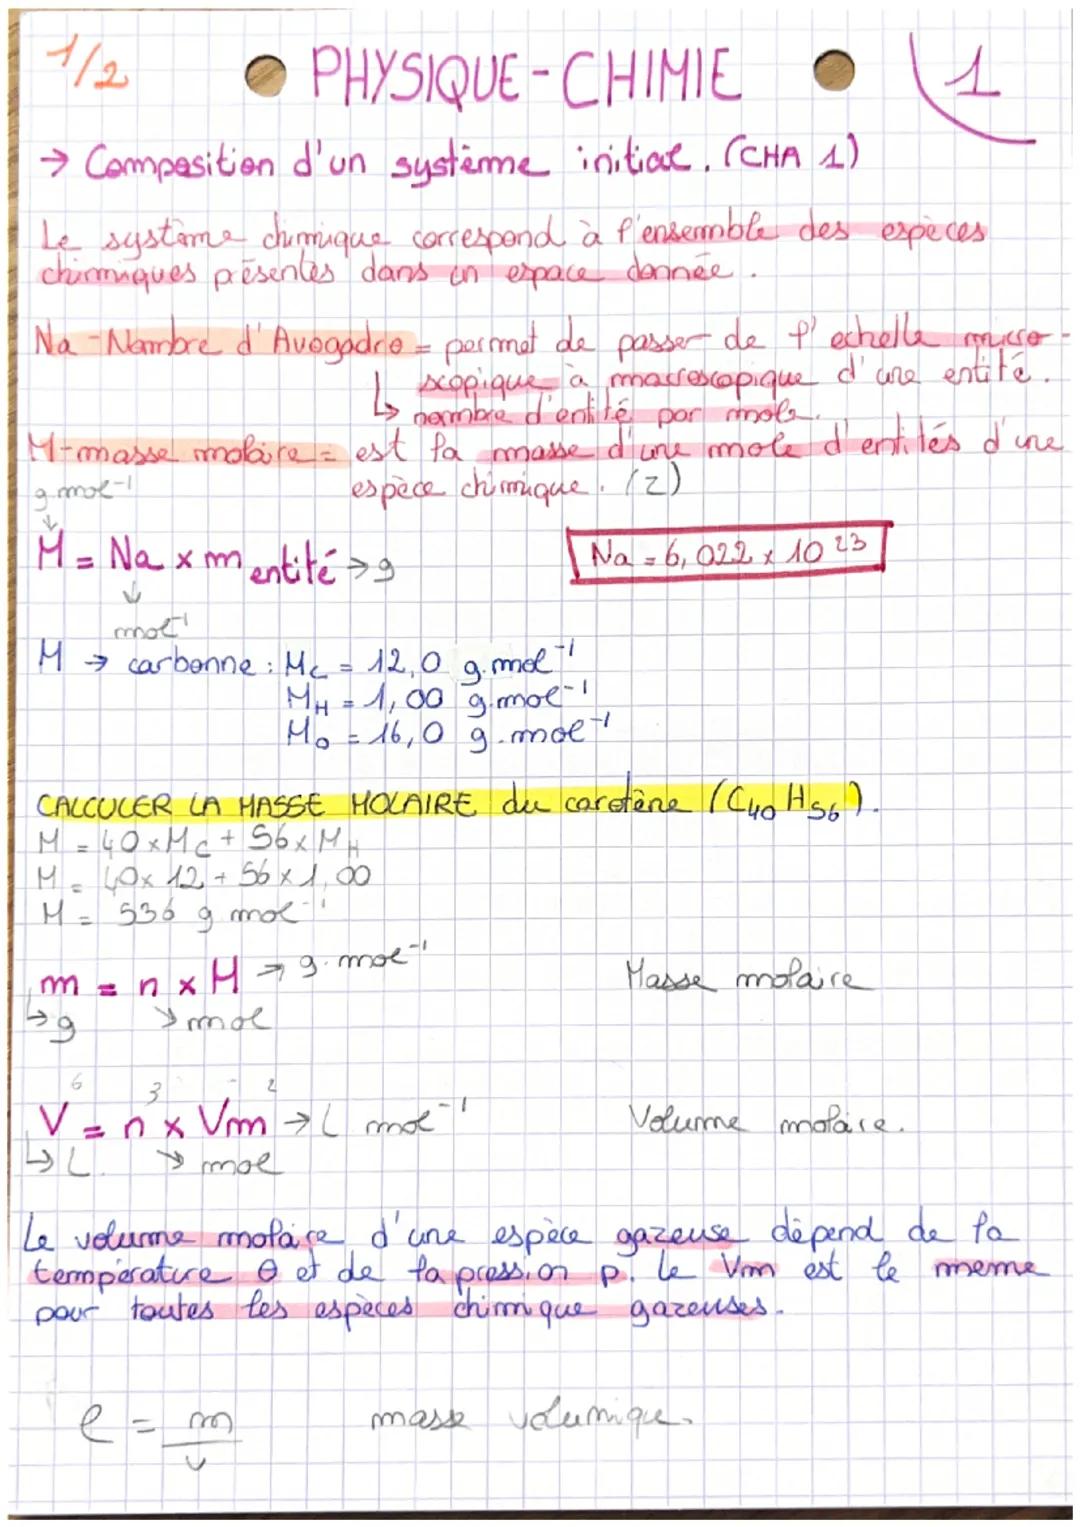 1/2
PHYSIQUE-CHIMIE
1
→ Composition d'un système initial. (CHA 1)
Le système chimique correspond à l'ensemble des espèces
chimiques présentes dans un espace donnée.
Na - Nombre d'Avogadro = permet de passer de l'echelle micro-
scopique à macroscopique d'une entité.
↳ nombre d'entité par mole.
M-masse molaire = est la masse d'une mole d'entités d'une
espèce chimique. (2)
g.mol-1
M = Na x m entité → g
Na = 6,022 x 10 23
mol-1
M → carbonne : Mc = 12,0 g.mol-1
MH = 1,00 g.mol-1
Mo = 16,0 g.mol-1
CALCULER LA MASSE MOLAIRE du carotène (C40 H56).
M = 40 x Mc + 56 x MH
M = 40x 12 + 56 x 1,00
M = 536 g mol-1
m = n x M → g.mol-1
Masse molaire
↳ g → mol
6 3 2
V = n x Vm → L mol-1
Volume molaire.
↳ L. → mol
Le volume molaire d'une espèce gazeuse dépend de la
température θ et de la pression p. Le Vm est le meme
pour toutes les espèces chimique gazeuses.
ρ = m
v
masse volumique.